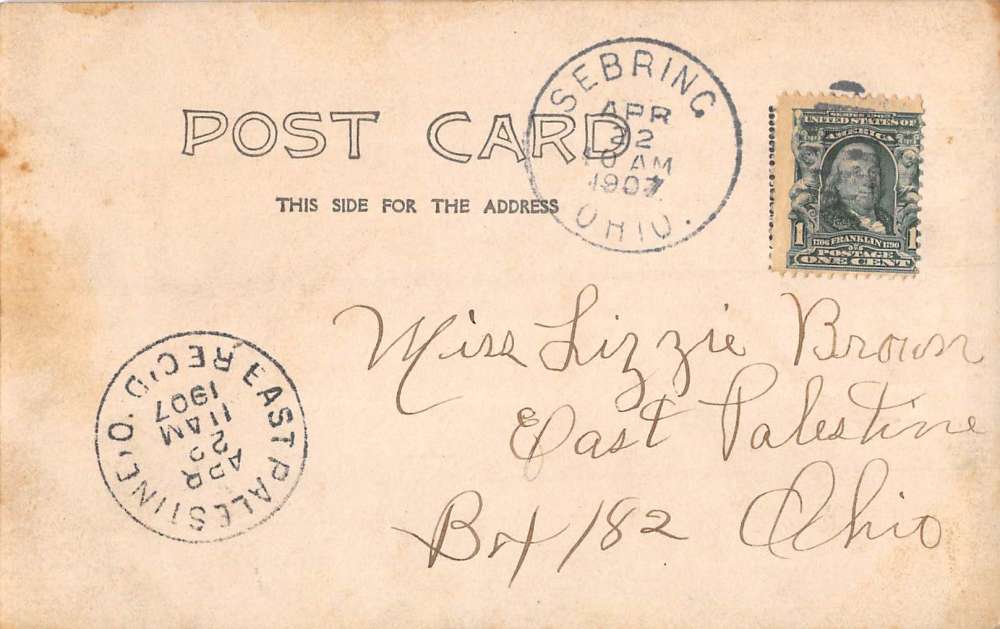 POST CARD
THIS SIDE FOR THE ADDRESS
SEBRING,
APR
22
10 AM
1907
OHIO.
SERIES 1902
UNITED STATES OF
AMERICA
1 1706 FRANKLIN 1790 1
POSTAGE
ONE CENT
Miss Lizzie Brown
East Palestine
Box 182 Ohio
EAST PALESTINE, O. REC'D.
APR
22
11 AM
1907